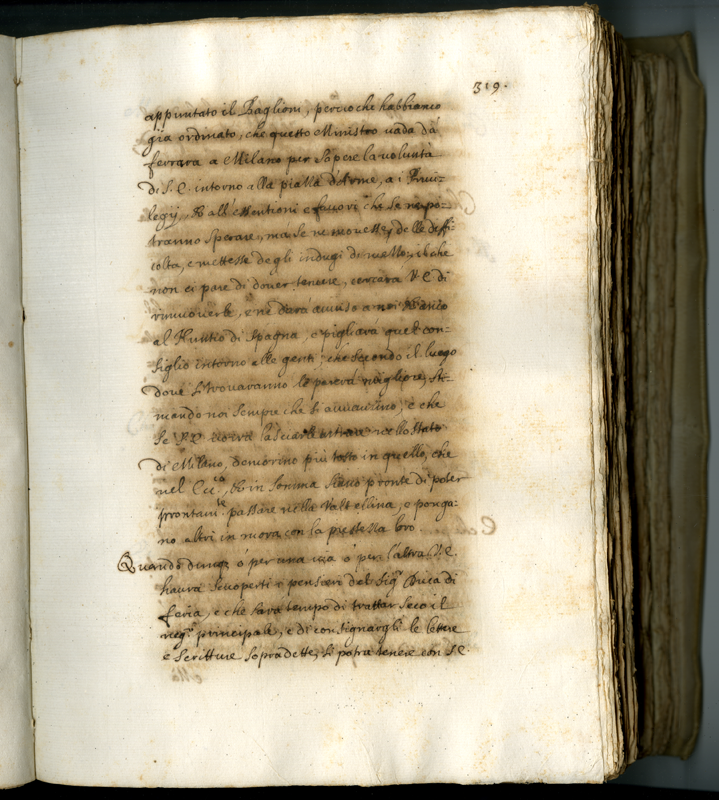 319.
appuntato il Baglioni, percioche habbiamo
gia ordinato, che questo Ministro vada da
ferrara a Milano per sapere la volunta
di S. E. intorno alla piazza d'Arme, a i Privi-
legij, & all'essentioni e favori che se ne po-
tranno sperare, ma se ne movesse delle diffi-
colta, e mettesse degli indugi di mezzo, il che
non ci pare di dover temere, cercara V. E. di
rimuoverle, e ne dara avviso a noi
al Nuntio di Spagna, e pigliara quel con-
siglio intorno alle genti, che secondo il luogo
dove si trovaranno le parera migliore, sti-
mando noi sempre che si avvanzino, e che
se S. E. vorra lasciarle entrare nello stato
di Milano, dimorino piu tosto in quello, che
nel , & in somma siano pronte di poter
prontam.te passare nella Valtellina, e ponga-
no altri in mora con la prestezza loro.
Quando dunq; ó per una via ó per l'altra V. E.
haura scoperti i pensieri del Sig.r Duca di
feria, e che sara tempo di trattar seco il
neg.o principale, e di consignargli le lettere
e scritture sopradette, si potra tenere con S. E.